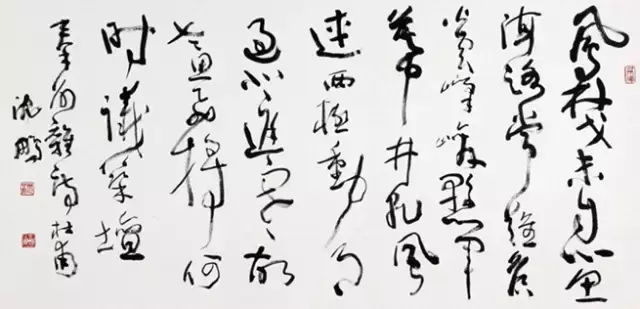 鳳林戈未息魚
海路常難候
火雲峰峻懸軍
幕井乾風
連西極動月
過北庭寒故
老思飛將何
時議築壇
秦州雜詩 杜甫
沈鵬